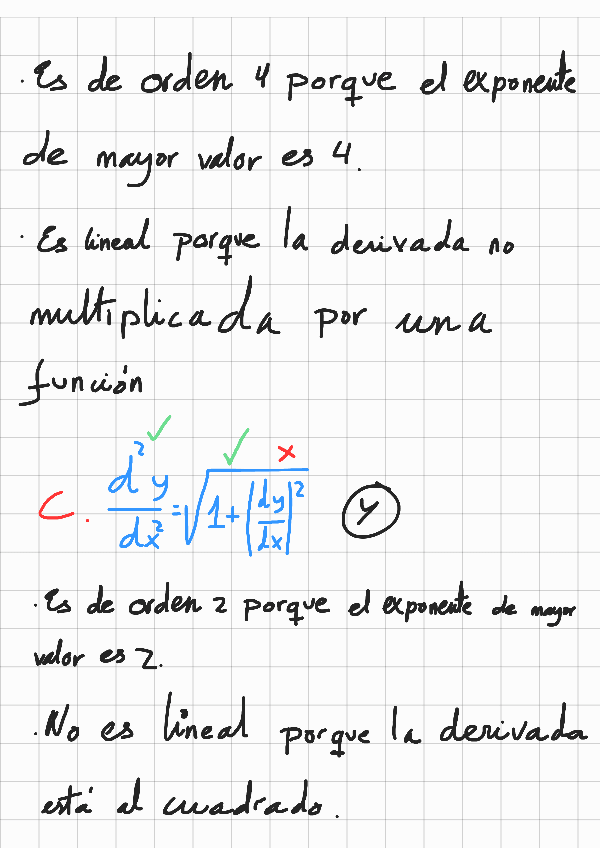 · Es de orden 4 porque el exponente
de mayor valor es 4.
· Es lineal porque la derivada no
multiplicada por una
función
C. d²y/dx² = √(1+|dy/dx|²) y
· Es de orden 2 porque el exponente de mayor
valor es 2.
· No es lineal porque la derivada
está al cuadrado.